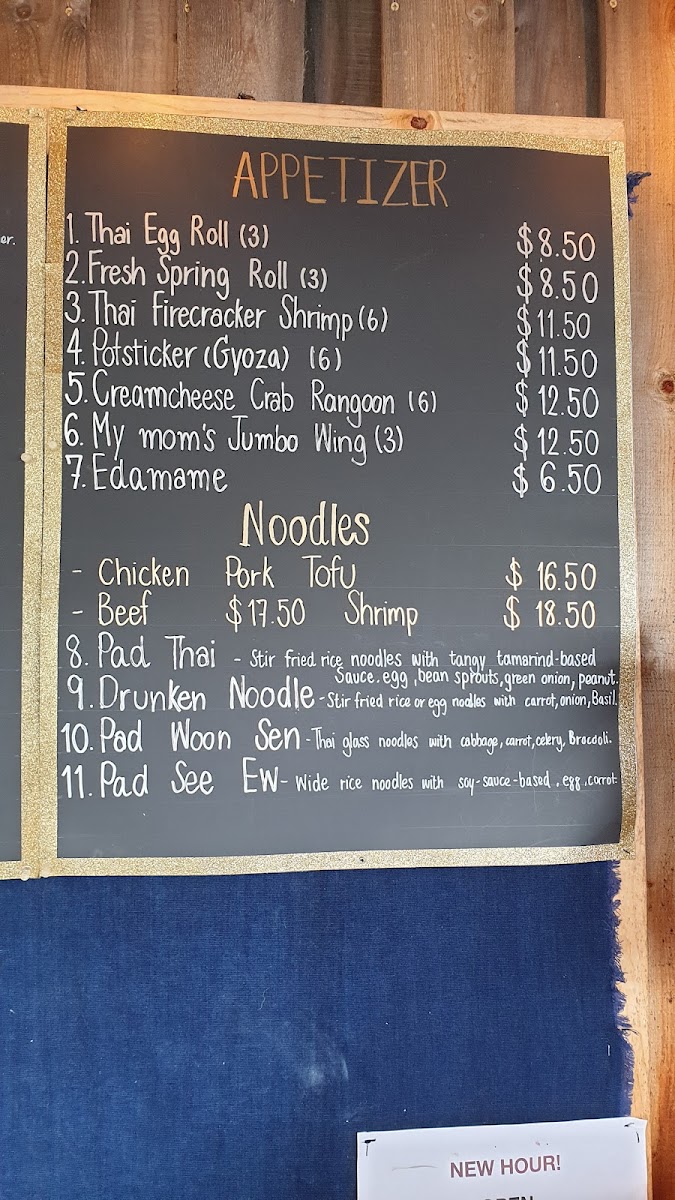 er.
APPETIZER
1. Thai Egg Roll (3) $8.50
2. Fresh Spring Roll (3) $8.50
3. Thai Firecracker Shrimp (6) $11.50
4. Potsticker (Gyoza) (6) $11.50
5. Creamcheese Crab Rangoon (6) $12.50
6. My mom's Jumbo Wing (3) $12.50
7. Edamame $6.50
Noodles
- Chicken Pork Tofu $16.50
- Beef $17.50 Shrimp $18.50
8. Pad Thai - Stir fried rice noodles with tangy tamarind-based
Sauce. egg, bean sprouts, green onion, peanut.
9. Drunken Noodle - Stir fried rice or egg noodles with carrot, onion, Basil.
10. Pad Woon Sen - Thai glass noodles with cabbage, carrot, celery, Broccoli.
11. Pad See Ew - Wide rice noodles with soy-sauce-based, egg, carrot.
NEW HOUR!